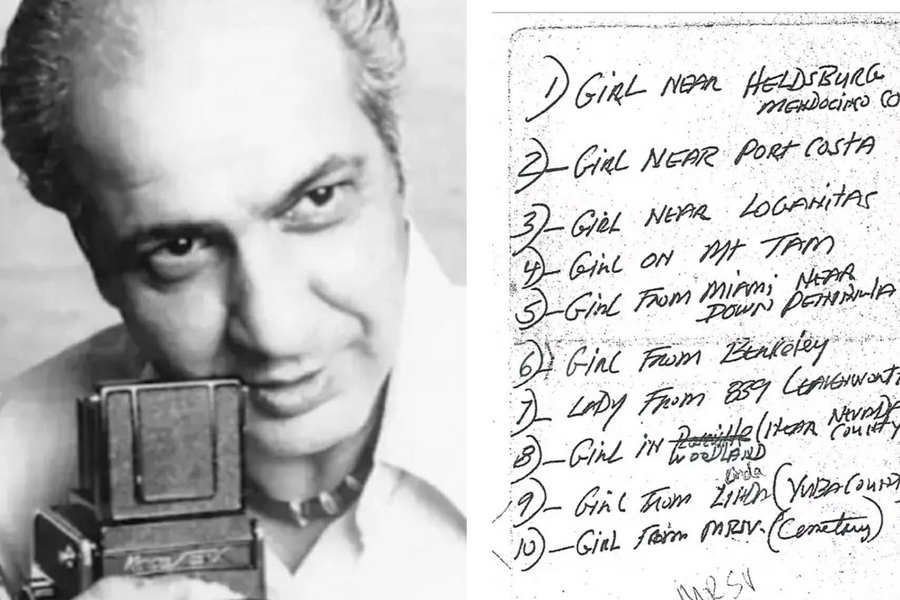 1) GIRL NEAR HELDSBURG
MENDOCINO CO
2)- GIRL NEAR PORT COSTA
3)- GIRL NEAR LOGANITAS
4)- GIRL ON MT TAM
5)- GIRL FROM MIAMI NEAR
DOWN PENINULA
6)- GIRL FROM BERKELEY
7)- LADY FROM 839 LEAVENWORT
8)- GIRL IN (NEAR NEVADA
WOODLAND COUNTY
Linda
9)- GIRL FROM LINDA (YUBA COUNT
10)- GIRL FROM MRSV. (Cemetary)
MRSV